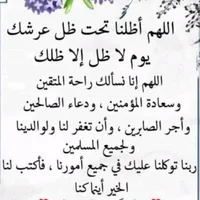 اللهم أظلنا تحت ظل عرشك
يوم لا ظل إلا ظلك
اللهم إنا نسألك راحة المتقين
وسعادة المؤمنين ، ودعاء الصالحين
وأجر الصابرين ، وأن تغفر لنا ولوالدينا
ولجميع المسلمين
ربنا توكلنا عليك في جميع أمورنا ، فأكتب لنا
الخير أينما كنا